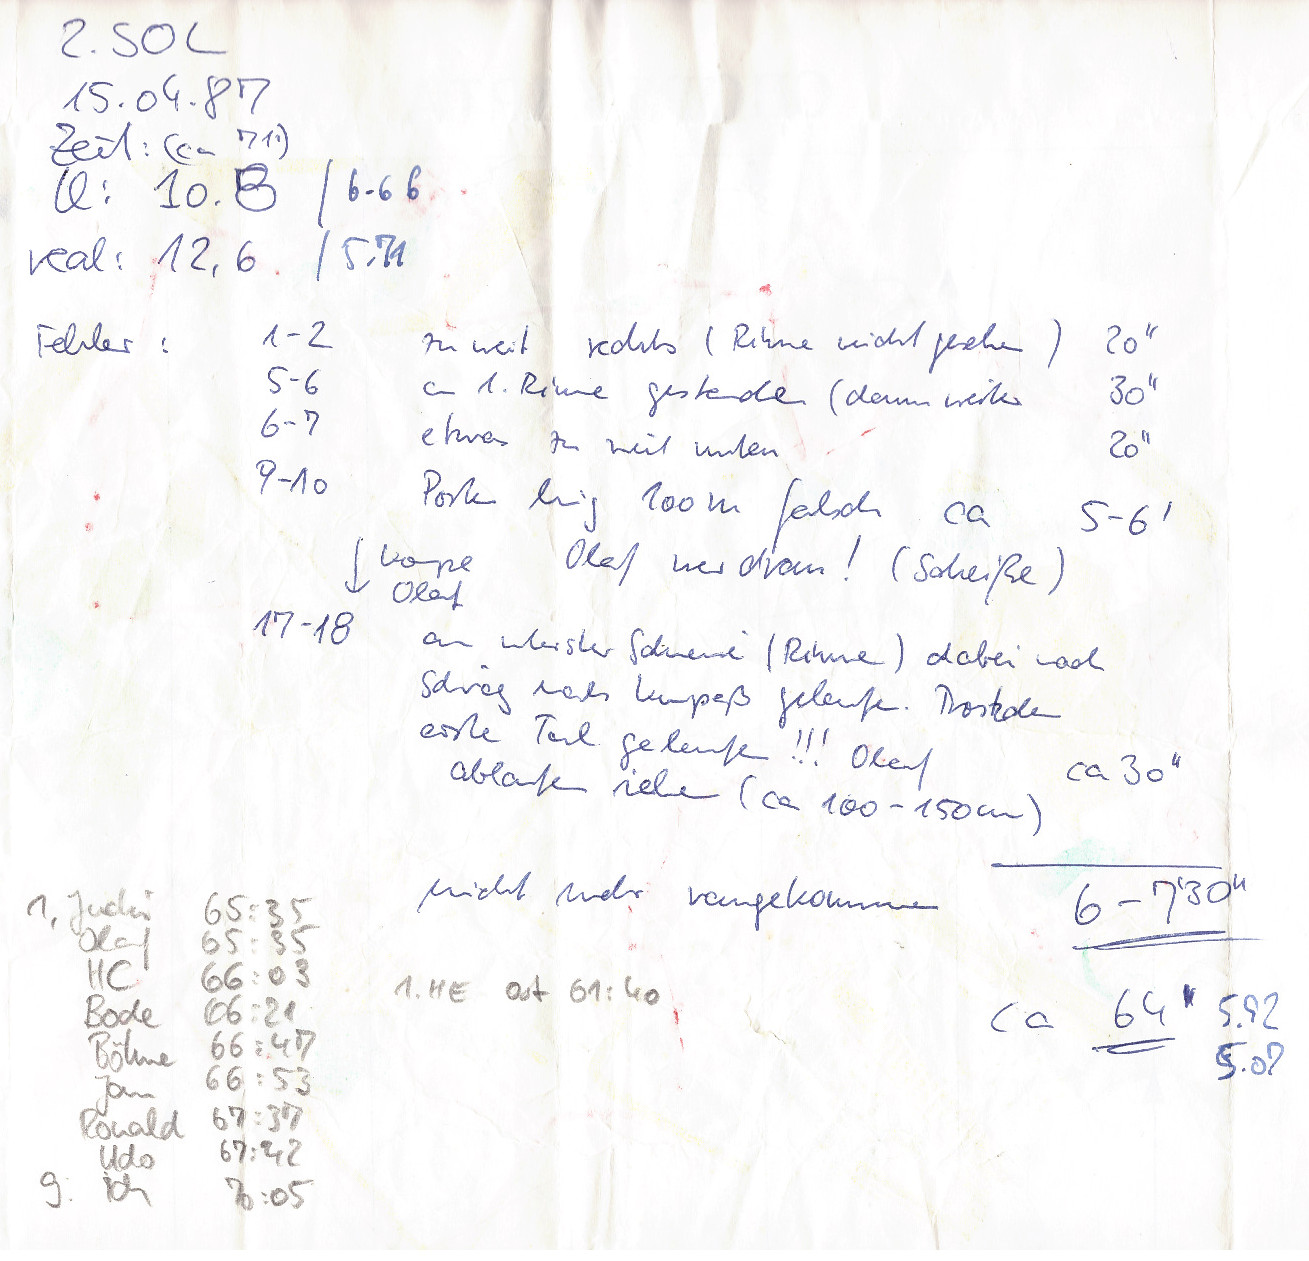 2. SOL
15.04.87
Zeit: (ca 71')
Q: 10.8 / 6.66
real: 12,6 / 5.71
Fehler: 1-2 zu weit rechts (Rinne nicht gesehen) 20"
5-6 an 1. Rinne gestanden (dann weiter 30"
6-7 etwas zu weit unten 20"
9-10 Posten hing 100m falsch ca 5-6'
↓ Olaf war dran! (Scheiße)
Olaf
17-18 an Schneise (Rinne) dabei nach
schräg nach Kompaß gelaufen. Trotzdem
erste Teil gelaufen!!! Olaf
ablaufen sehen (ca 100-150m) ca 30"
nicht mehr rangekommen 6-7'30"
1. 65:35
Olaf 65:35
HC 66:03
1. HE 61:40
Bode 66:21
ca 64' 5.92
Böhme 66:47
5.07
Jan 66:53
Ronald 67:37
Udo 67:42
9. Ich 70:05